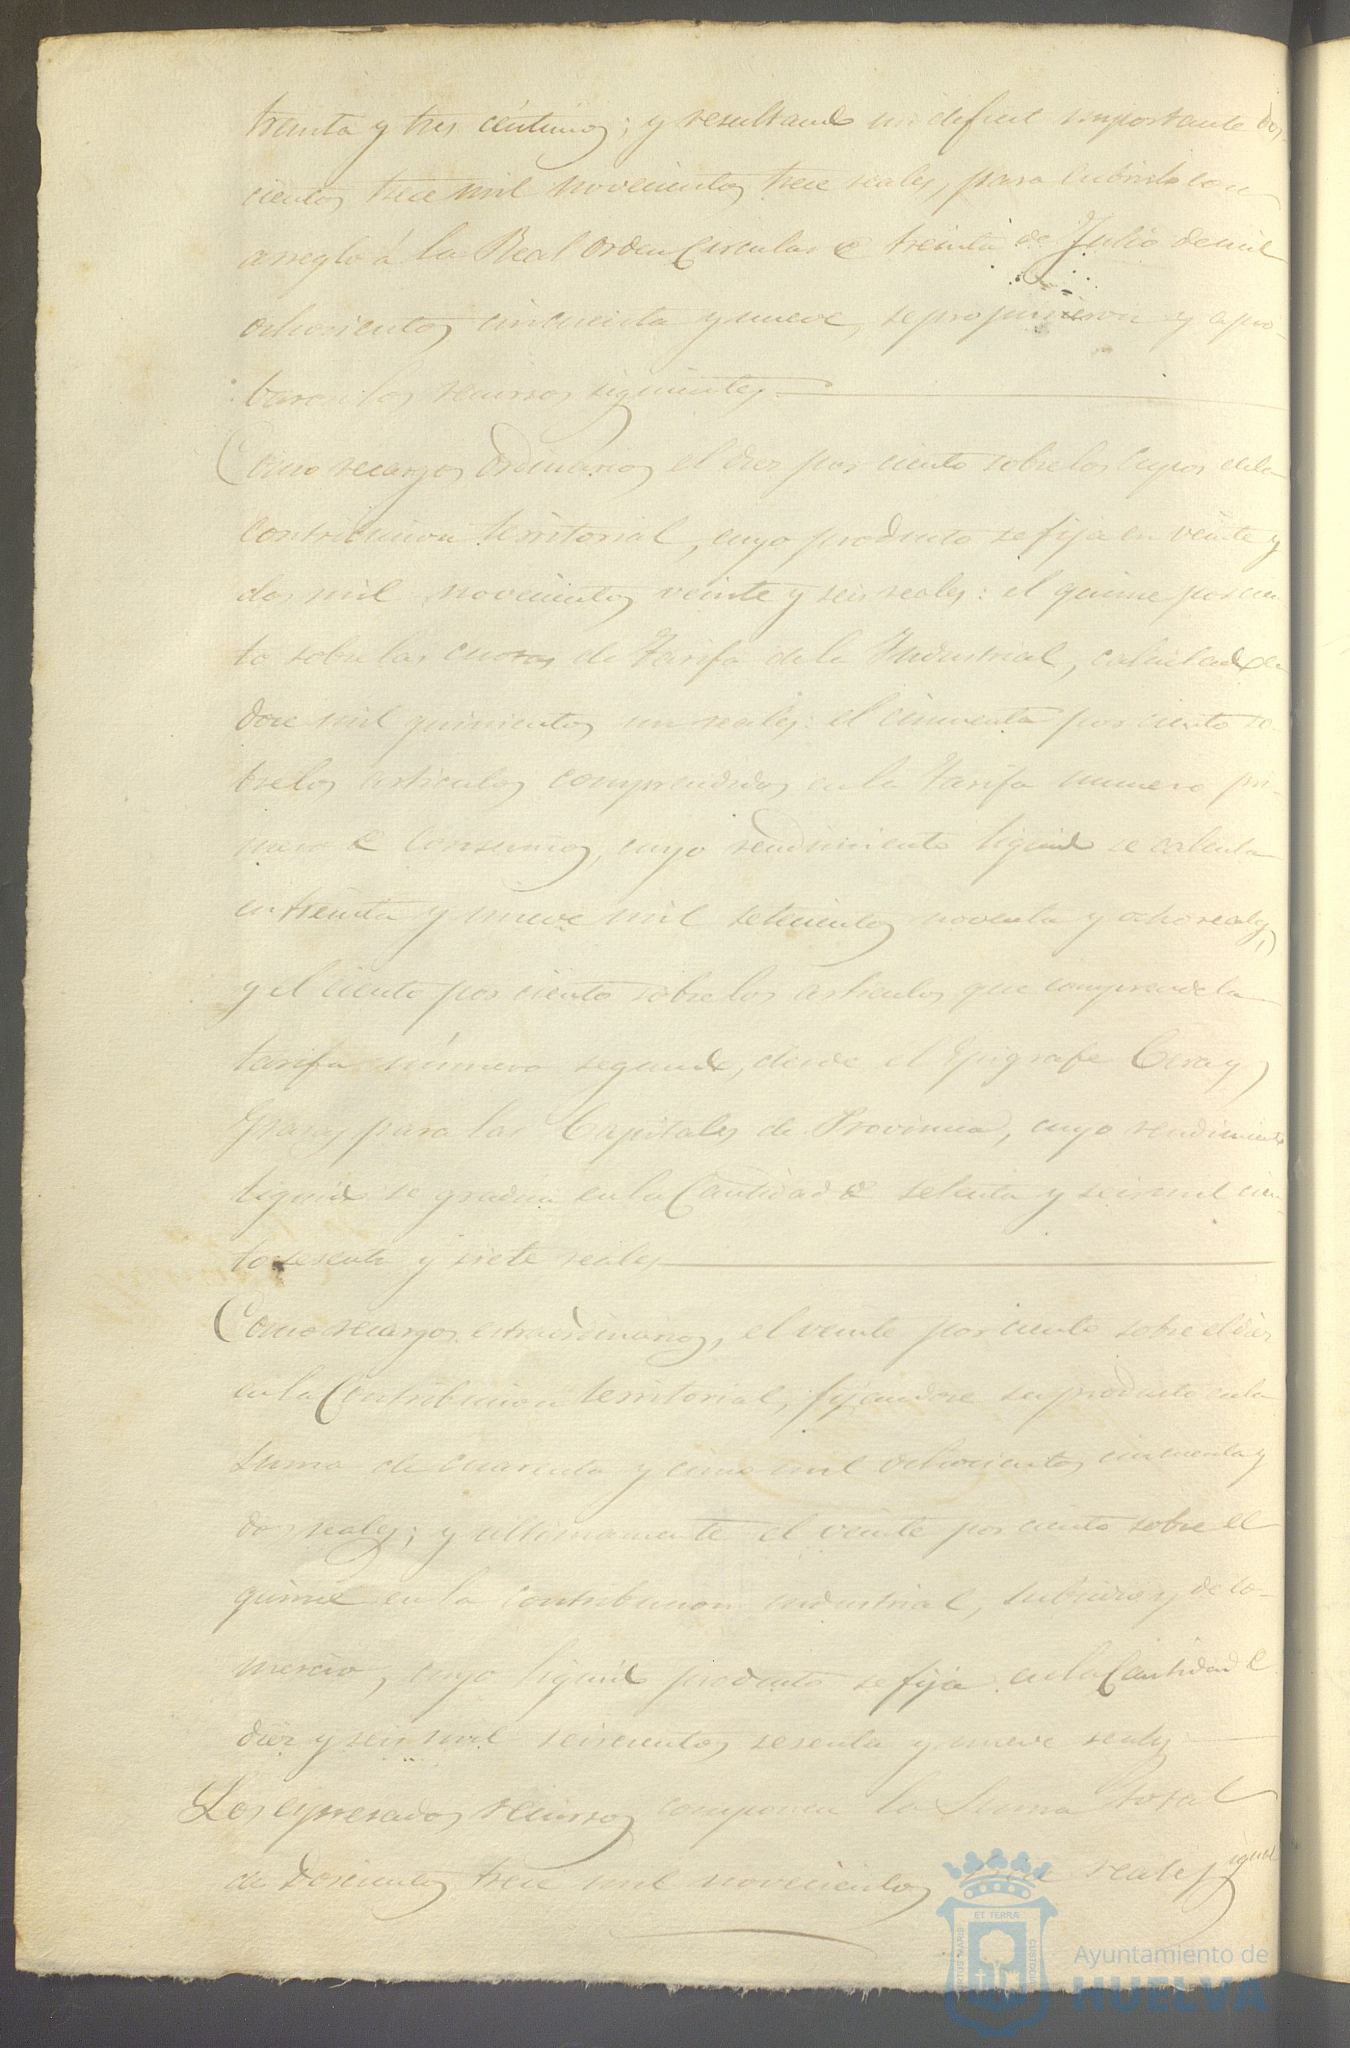 treinta y tres céntimos; y resultando un deficit importante dos-
cientos trece mil novecientos trece reales, para cubrirlo con
arreglo á la Real orden Circular de treinta de Julio de mil
ochocientos cincuenta y nueve, se propusieron y apro-
baron los recursos siguientes.
Como recargos Ordinarios el diez por ciento sobre los Cupos de la
contribucion territorial, cuyo producto se fija en veinte y
dos mil novecientos veinte y seis reales: el quince por cien-
to sobre las cuotas de Tarifa de la Industrial, calculado en
doce mil quinientos un reales: el cincuenta por ciento so-
bre los articulos comprendidos en la Tarifa numero pri-
mero de Consumos, cuyo rendimiento liquido se calcula
en treinta y nueve mil setecientos noventa y ocho reales,
y el ciento por ciento sobre los articulos que comprende la
tarifa número segundo, desde el Epigrafe Cera y
Grasas para las Capitales de Provincia, cuyo rendimiento
liquido se gradua en la Cantidad de setenta y seis mil cien-
to sesenta y siete reales
Como recargos extraordinarios, el veinte por ciento sobre el diez
en la Contribucion territorial, fijandose su producto en la
suma de cuarenta y cinco mil ochocientos cincuenta y
dos reales; y ultimamente el veinte por ciento sobre el
quince en la contribucion industrial, subsidio y de co-
mercio, cuyo liquido producto se fija en la Cantidad de
diez y seis mil seiscientos sesenta y nueve reales
Los expresados recursos componen la Suma total
de Doscientos trece mil novecientos trece reales igual
ET TERRA
CUSTODIA
PORTUS MARIS
Ayuntamiento de
HUELVA